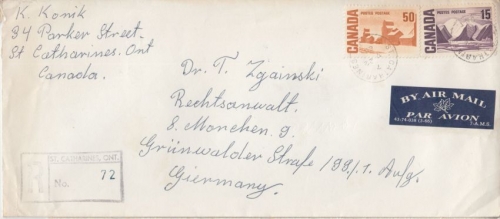 K. Konik
94 Parker Street.
St Catharines. Ont
Canada.
CANADA
POSTES POSTAGE
50
CANADA
POSTES POSTAGE
15
Dr. T. Zgainski
Rechtsanwalt.
8. Monchen 9.
Grünwalder Straße 199/1. Aufg.
Giermany.
BY AIR MAIL
PAR AVION
ST. CATHARINES, ONT.
R
No. 72